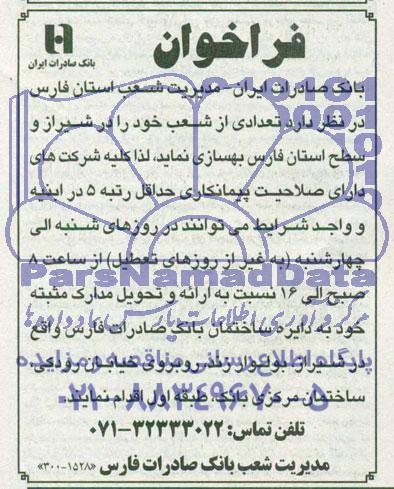 بانک صادرات ایران
فراخوان
بانک صادرات ایران - مدیریت شعب استان فارس
در نظر دارد تعدادی از شعب خود را در شیراز و
سطح استان فارس بهسازی نماید، لذا کلیه شرکت های
دارای صلاحیت پیمانکاری حداقل رتبه ۵ در ابنیه
و واجد شرایط می توانند در روزهای شنبه الی
چهارشنبه (به غیر از روزهای تعطیل) از ساعت ۸
صبح الی ۱۶ نسبت به ارائه و تحویل مدارک مثبته
خود به دایره ساختمان بانک صادرات فارس واقع
در شیراز، بولوار زند روبروی خیابان رودکی،
ساختمان مرکزی بانک، طبقه اول اقدام نمایند.
تلفن تماس: ۳۲۳۳۳۰۲۲-۰۷۱
مدیریت شعب بانک صادرات فارس «۱۵۲۸-۳۰۰»
ParsNamadData
مرکز فرآوری اطلاعات پارس نماد داده ها
پایگاه اطلاع رسانی مناقصه و مزایده
۰۲۱-۸۸۳۴۹۶۷۰-۵